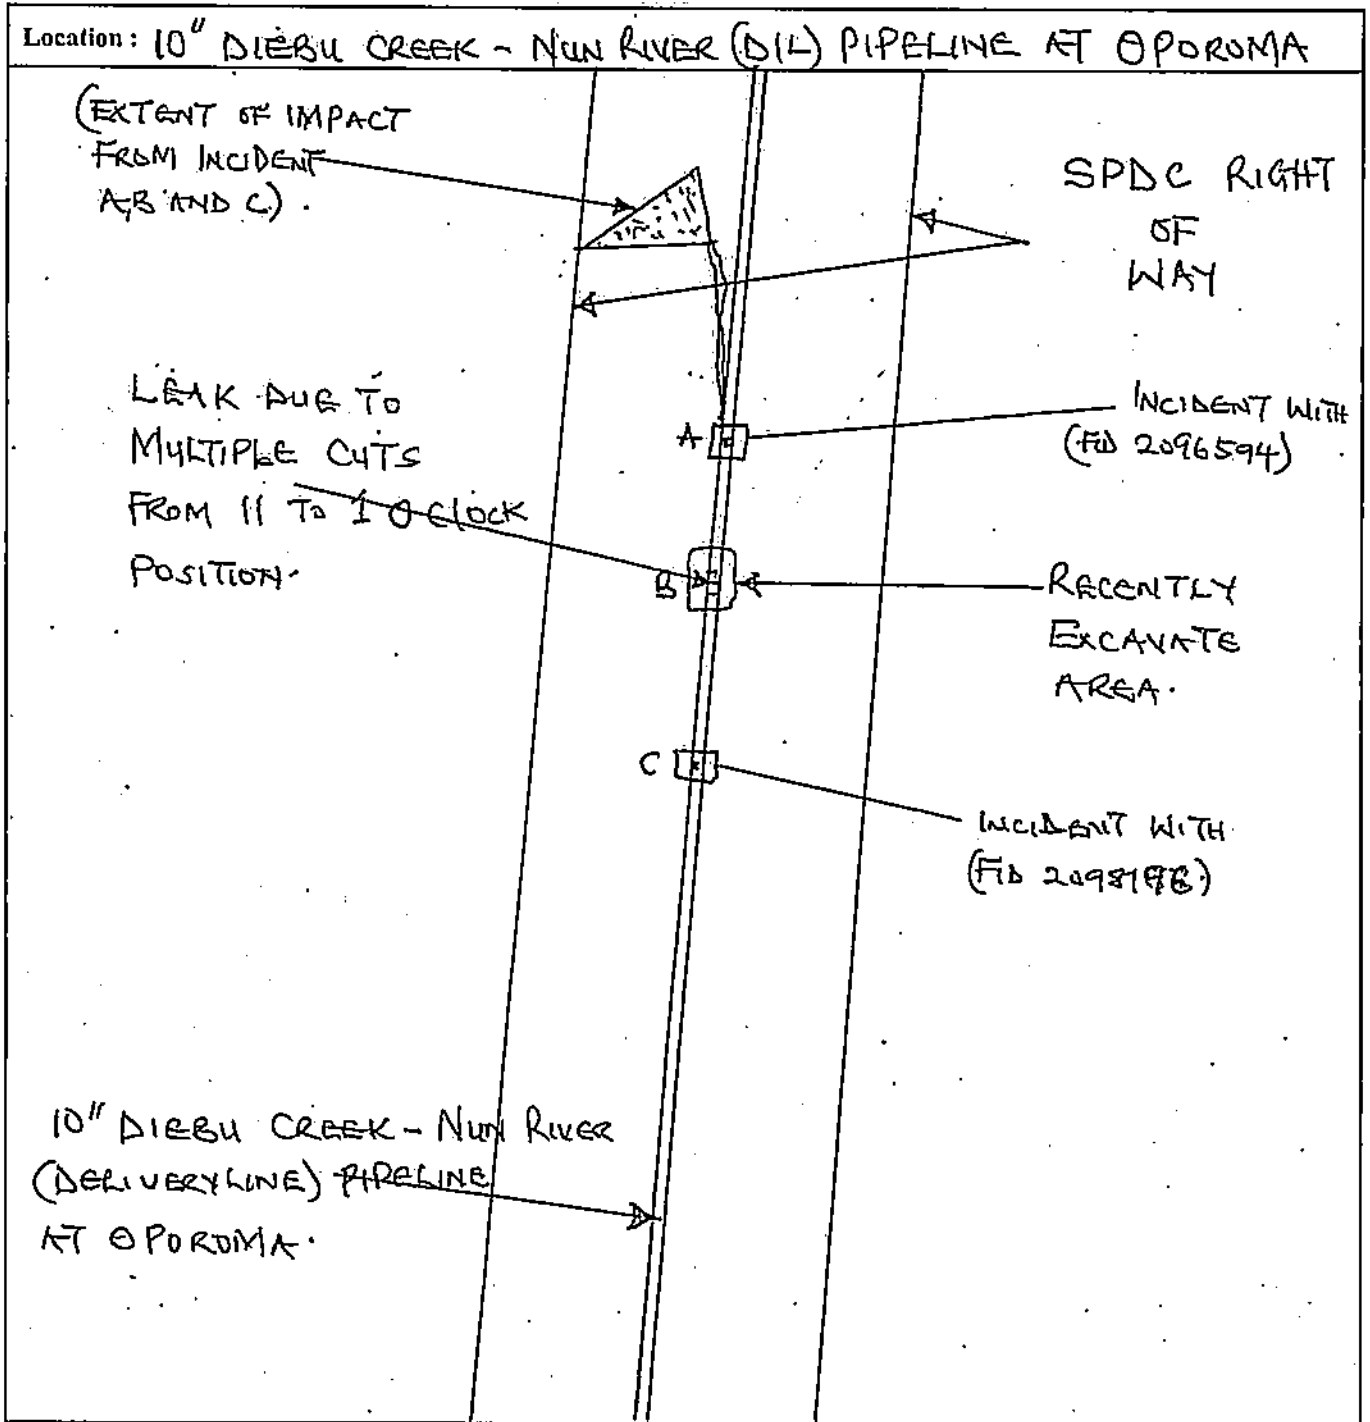 Location: 10" DIEBU CREEK - NUN RIVER (D/L) PIPELINE AT OPOROMA
(EXTENT OF IMPACT
FROM INCIDENT
A,B AND C).
SPDC RIGHT
OF
WAY
LEAK DUE TO
MULTIPLE CUTS
FROM 11 TO 1 O CLOCK
POSITION.
A
INCIDENT WITH
(FID 2096594)
B
RECENTLY
EXCAVATE
AREA.
C
INCIDENT WITH
(FID
10" DIEBU CREEK - NUN RIVER
(DELIVERYLINE) PIPELINE
AT OPOROMA.